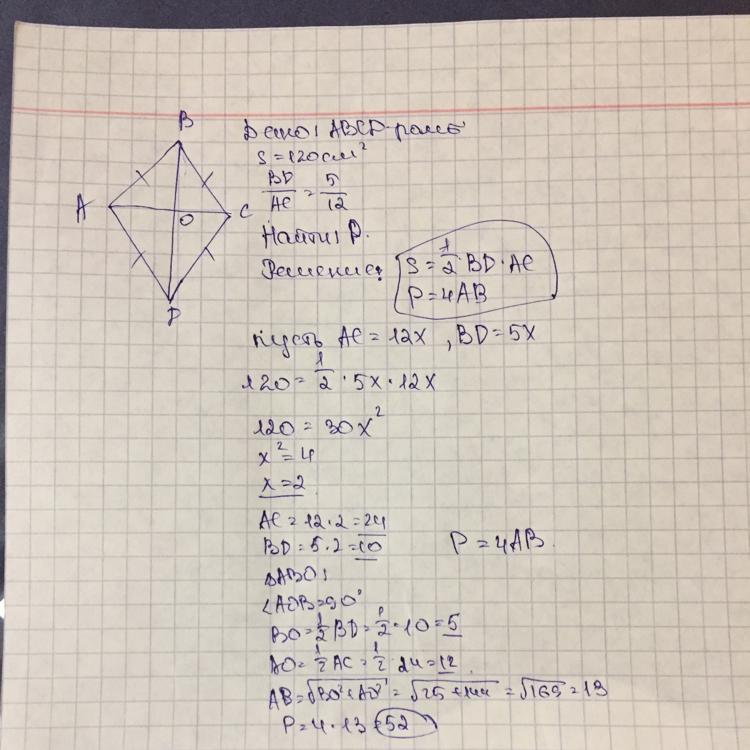 B
A
C
O
D
Дано: ABCD-ромб
S=120см²
BD/AC = 5/12
Найти: P.
Решение:
S=1/2·BD·AC
P=4AB
Пусть AC=12x, BD=5x
120=1/2·5x·12x
120=30x²
x²=4
x=2
AC=12·2=24
BD=5·2=10
P=4AB.
ΔABO:
∠AOB=90°
BO=1/2BD=1/2·10=5
AO=1/2AC=1/2·24=12.
AB=√BO²+AO²=√25+144=√169=13
P=4·13=52